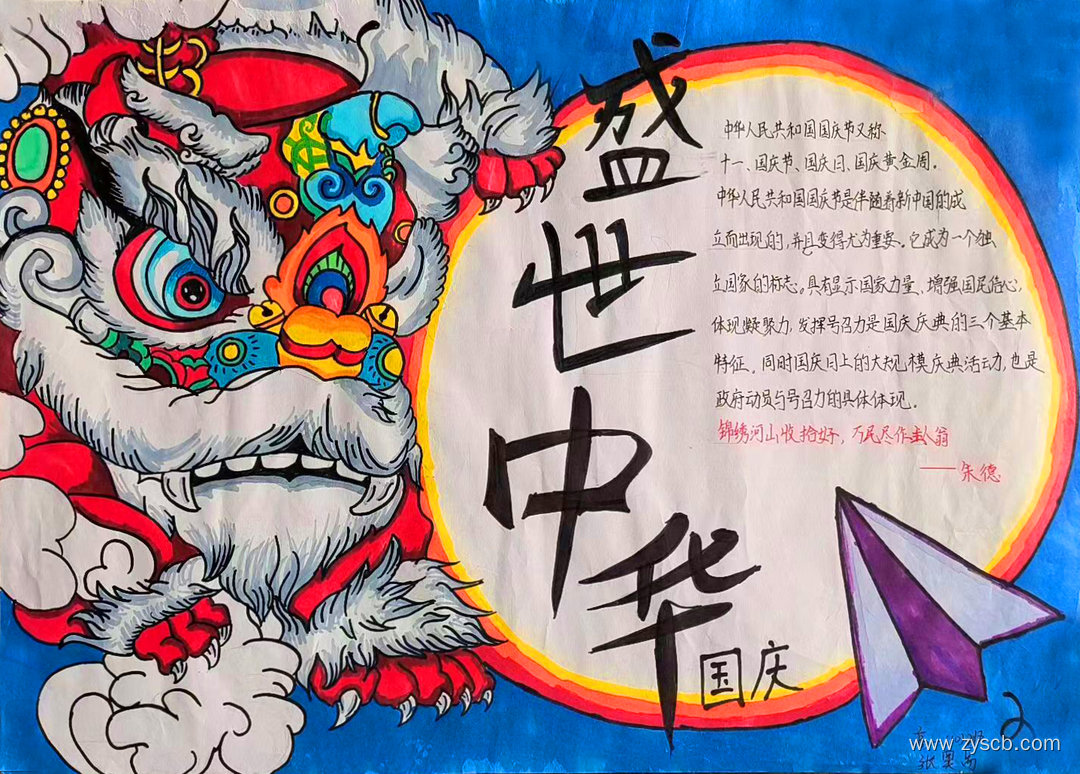 盛世中华
国庆
中华人民共和国国庆节又称
十一、国庆节、国庆日、国庆黄金周。
中华人民共和国国庆节是伴随着新中国的成
立而出现的,并且变得尤为重要。它成为一个独
立国家的标志。具有显示国家力量、增强国民信心,
体现凝聚力,发挥号召力是国庆庆典的三个基本
特征。同时国庆日上的大规模庆典活动,也是
政府动员与号召力的具体体现。
锦绣河山收拾好,万民尽作主人翁
——朱德
www.zyscb.com